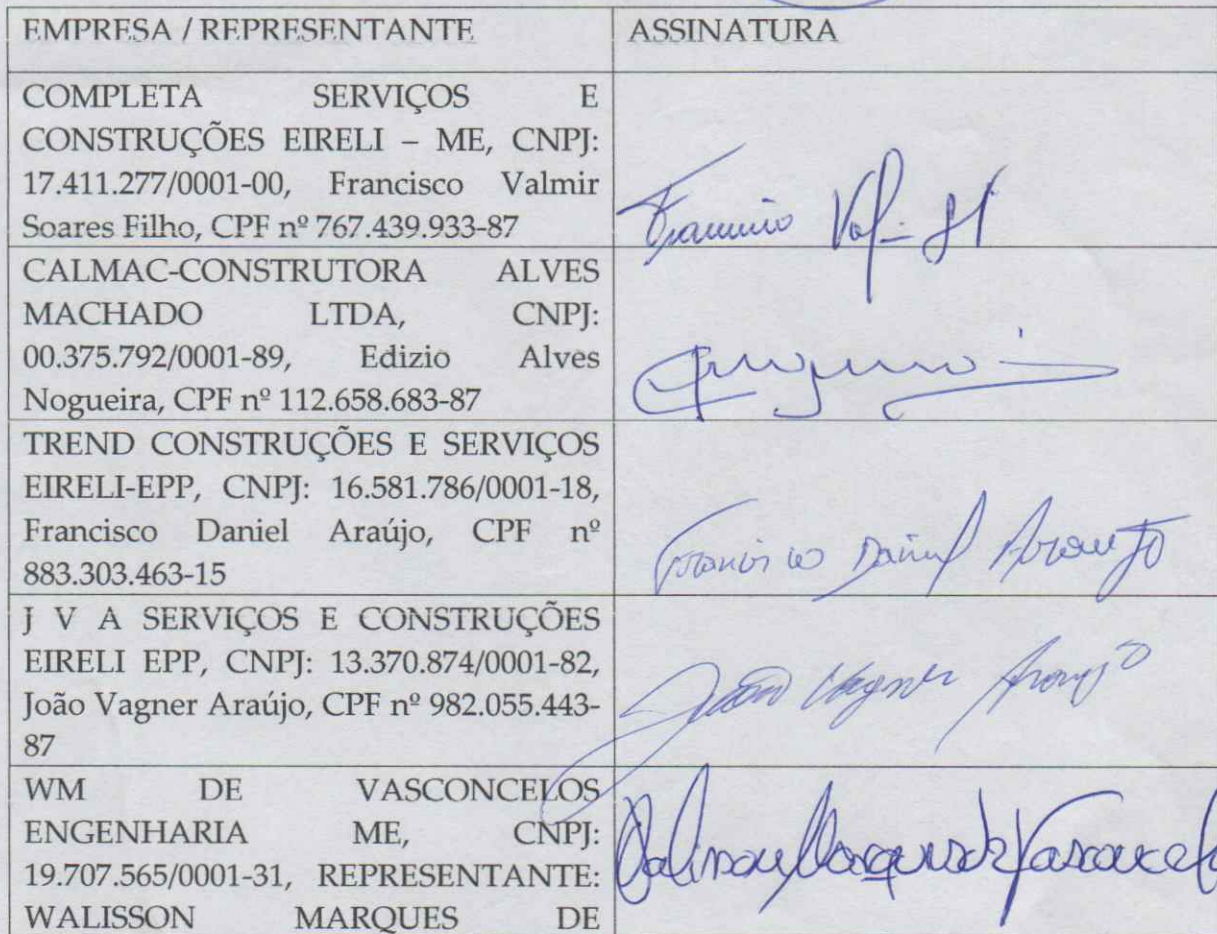 EMPRESA / REPRESENTANTE ASSINATURA
COMPLETA SERVIÇOS E
CONSTRUÇÕES EIRELI – ME, CNPJ:
17.411.277/0001-00, Francisco Valmir
Soares Filho, CPF nº 767.439.933-87
CALMAC-CONSTRUTORA ALVES
MACHADO LTDA, CNPJ:
00.375.792/0001-89, Edizio Alves
Nogueira, CPF nº 112.658.683-87
TREND CONSTRUÇÕES E SERVIÇOS
EIRELI-EPP, CNPJ: 16.581.786/0001-18,
Francisco Daniel Araújo, CPF nº
883.303.463-15
Francisco Daniel Araujo
J V A SERVIÇOS E CONSTRUÇÕES
EIRELI EPP, CNPJ: 13.370.874/0001-82,
João Vagner Araújo, CPF nº 982.055.443-
87
João Vagner Araujo
WM DE VASCONCELOS
ENGENHARIA ME, CNPJ:
19.707.565/0001-31, REPRESENTANTE:
WALISSON MARQUES DE